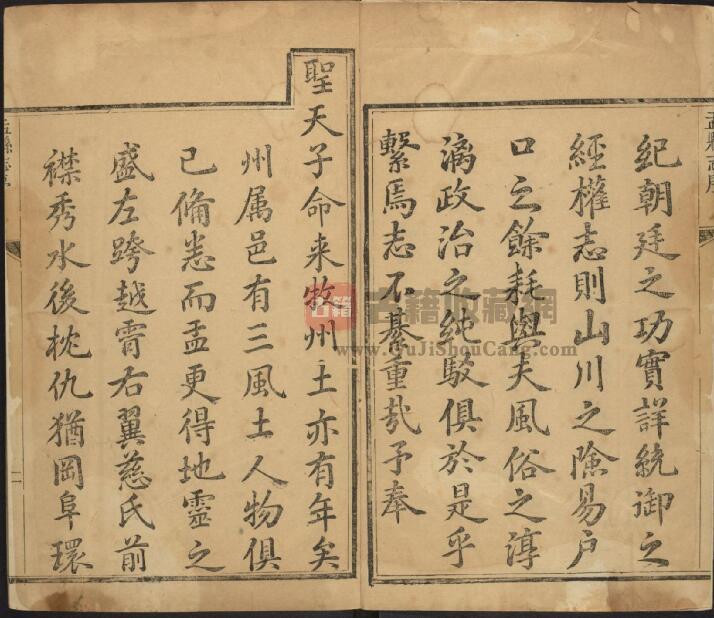 紀朝廷之功實詳統御之
經權志則山川之險易户
口之餘耗與夫風俗之淳
漓政治之純駁俱於是乎
繫焉志不綦重㢤予奉
聖天子命来牧州土亦有年矣
州属邑有三風土人物俱
已偹悉而盂更得地靈之
盛左跨越霄右翼慈氏前
襟秀水後枕仇猶岡阜環
盂縣志序
二
古籍收藏網
www.GuJiShouCang.com